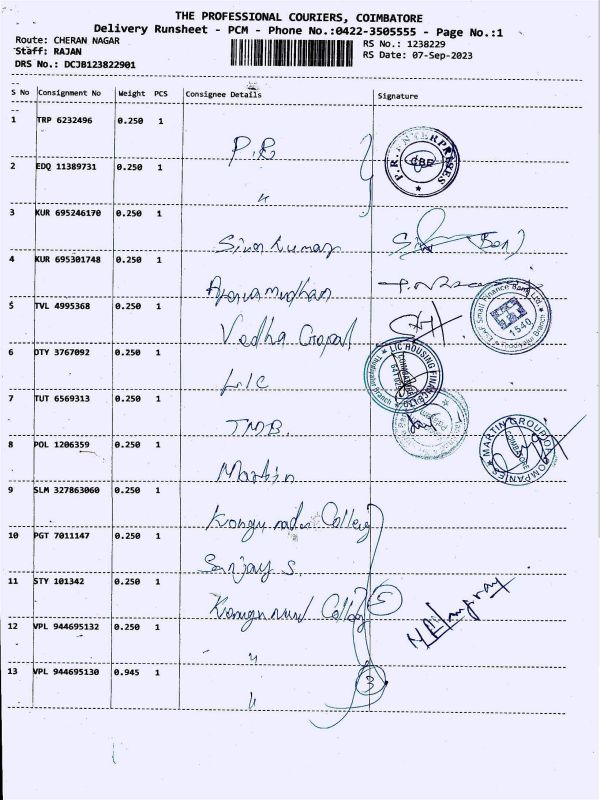 THE PROFESSIONAL COURIERS, COIMBATORE
Delivery Runsheet - PCM - Phone No.:0422-3505555 - Page No.:1
Route: CHERAN NAGAR RS No.: 1238229
Staff: RAJAN RS Date: 07-Sep-2023
DRS No.: DCJB123822901
S No Consignment No Weight PCS Consignee Details Signature
1 TRP 6232496 0.250 1 P.R P.R. ENTERPRISES CBE
2 EDQ 11389731 0.250 1 "
3 KUR 695246170 0.250 1 Siva Kumar
4 KUR 695301748 0.250 1
5 TVL 4995368 0.250 1 Vedha Gopal ESAF Small Finance Bank Ltd. 1540 Branch
6 DTY 3767092 0.250 1 LIC LIC HOUSING FINANCE COIMBATORE Branch
7 TUT 6569313 0.250 1 TMB.
8 POL 1206359 0.250 1 Martin MARTIN GROUP OF COMPANIES COIMBATORE
9 SLM 327863060 0.250 1 Kongu nadu College
10 PGT 7011147 0.250 1 Sanjay S.
11 STY 101342 0.250 1 Kongunadu College 5
12 VPL 944695132 0.250 1 "
13 VPL 944695130 0.945 1 " 3